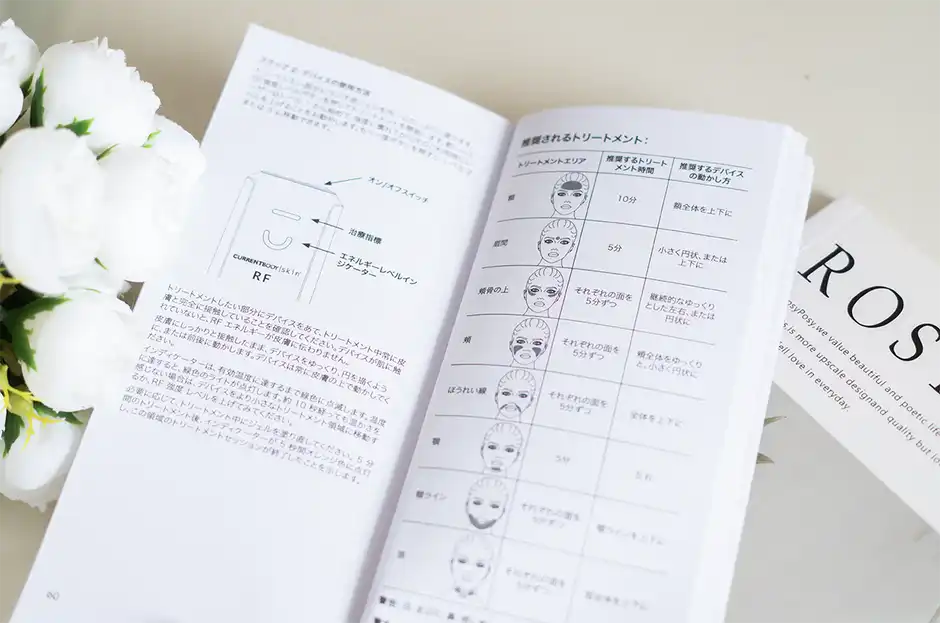 ステップ 2: デバイスの使用方法
オン/オフスイッチ
治療指標
エネルギーレベルイン
ジケーター
CURRENTBODY skin
RF
トリートメントしたい部分にデバイスをあて、トリートメント中常に皮
膚と完全に接触していることを確認してください。デバイスが肌に触
れていないと、RF エネルギーが皮膚に伝わりません。
皮膚にしっかりと接触したまま、デバイスをゆっくり、円を描くよう
に、または前後に動かします。デバイスは常に皮膚の上で動かしてく
ださい。
インディケーターは、有効温度に達するまで緑色に点滅します。温度
に達すると、緑色のライトが点灯します。約 10 秒経っても温かさを
感じない場合は、デバイスをより小さなトリートメント領域に移動す
るか、RF 強度 レベルを上げてみてください。
必要に応じて、トリートメント中にジェルを塗り直してください。5 分
間のトリートメント後、インディケーターが 5 秒間オレンジ色に点灯
し、この領域のトリートメントセッションが終了したことを示します。
推奨されるトリートメント：
トリートメントエリア 推奨するトリート
メント時間 推奨するデバイス
の動かし方
額 10分 額全体を上下に
眉間 5分 小さく円状、または
上下に
頬骨の上 それぞれの面を
5分ずつ 継続的なゆっくり
とした左右、または
円状に
頬 それぞれの面を
5分ずつ 頬全体をゆっくり
と、小さく円状に
ほうれい線 それぞれの面を
5分ずつ 全体を上下に
顎 5分
顎ライン それぞれの面を
5分ずつ 顎ラインを上下に
それぞれの面を
5分ずつ
ROS
osyPosy,we value beautiful and poetic life
is more upscale designand quality but lo
ell love in everyday.